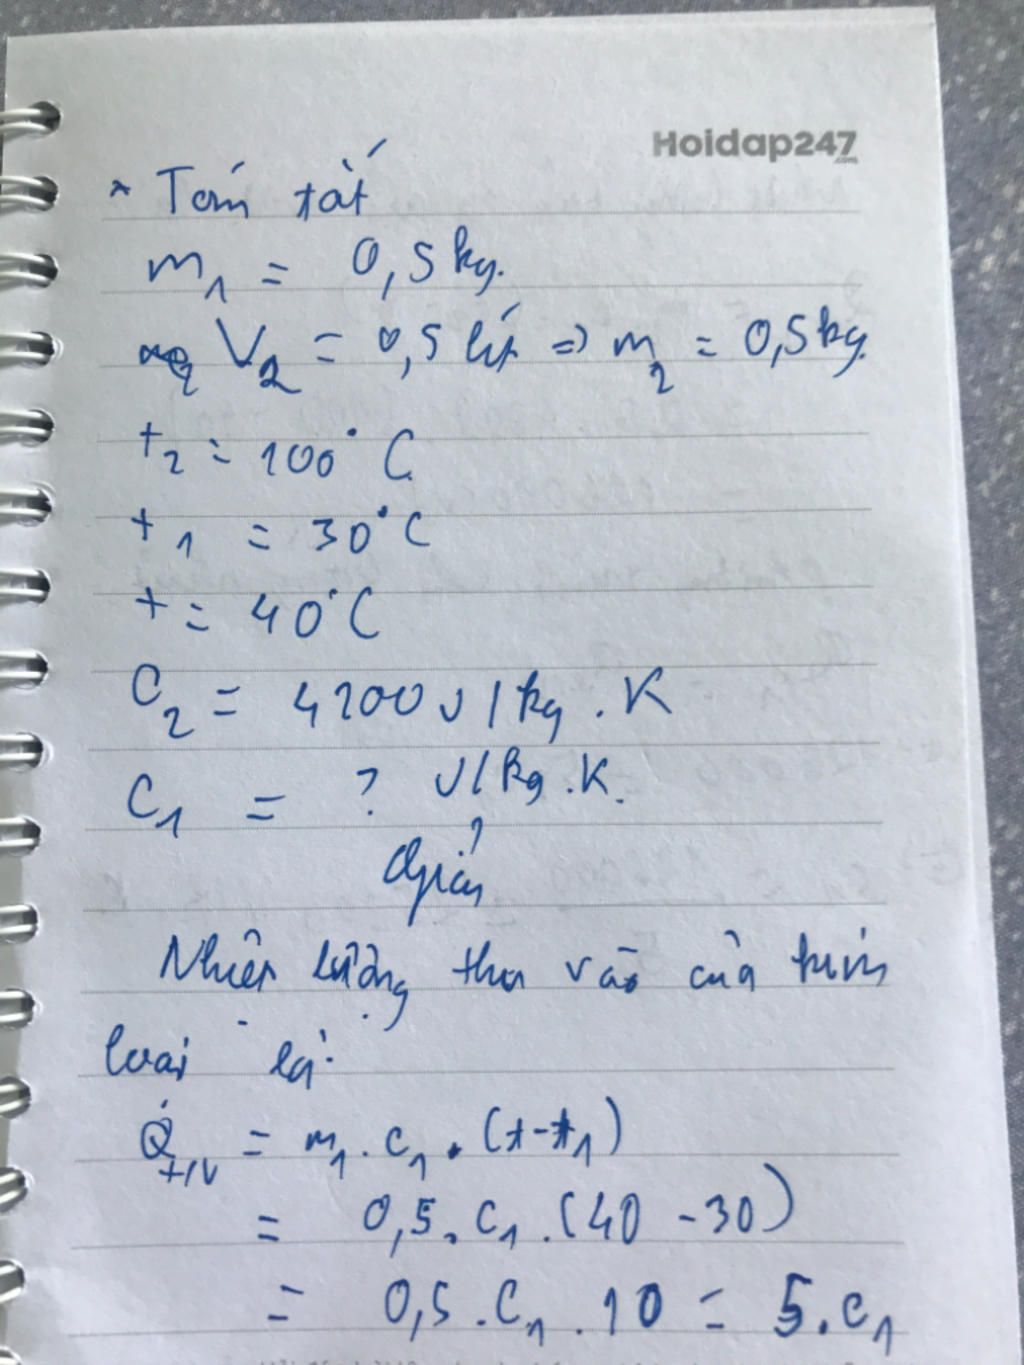 Hoidap247
.com
* Tóm tắt
m₁ = 0,5 kg.
V₂ = 0,5 lít => m₂ = 0,5 kg.
t₂ = 100°C
t₁ = 30°C
t = 40°C
C₂ = 4200 J/kg.K
C₁ = ? J/kg.K.
Giải
Nhiệt lượng thu vào của kim
loại là:
Q thu = m₁.c₁.(t-t₁)
= 0,5.c₁.(40-30)
= 0,5.C₁.10 = 5.c₁